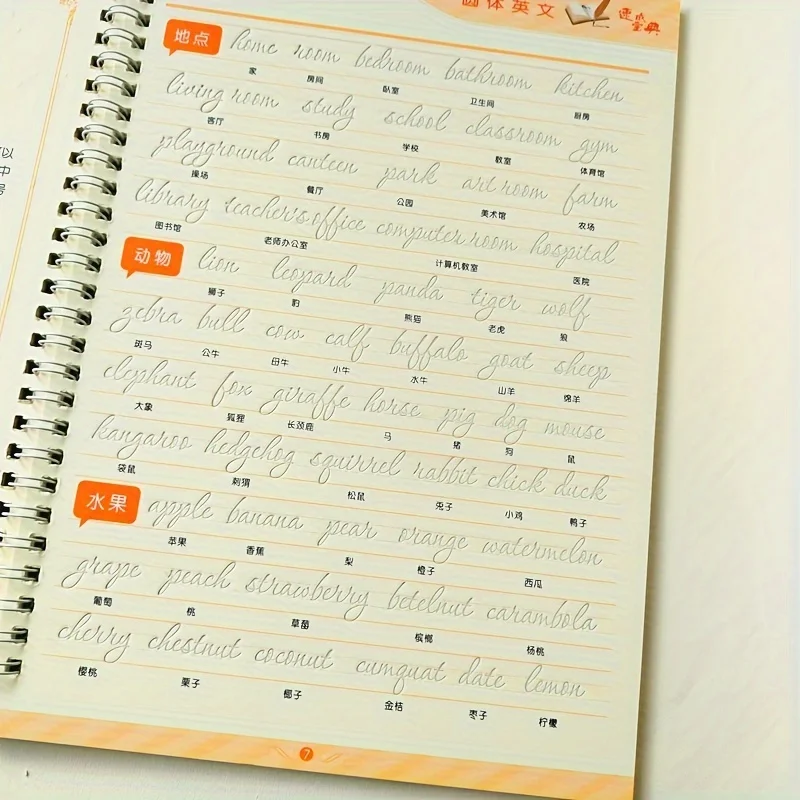 圆体英文
速成宝典
地点 home room bedroom bathroom kitchen
家 房间 卧室 卫生间 厨房
living room study school classroom gym
客厅 书房 学校 教室 体育馆
playground canteen park art room farm
操场 餐厅 公园 美术馆 农场
library teacher's office computer room hospital
图书馆 老师办公室 计算机教室 医院
动物 lion leopard panda tiger wolf
狮子 豹 熊猫 老虎 狼
zebra bull cow calf buffalo goat sheep
斑马 公牛 母牛 小牛 水牛 山羊 绵羊
elephant fox giraffe horse pig dog mouse
大象 狐狸 长颈鹿 马 猪 狗 鼠
kangaroo hedgehog squirrel rabbit chick duck
袋鼠 刺猬 松鼠 兔子 小鸡 鸭子
水果 apple banana pear orange watermelon
苹果 香蕉 梨 橙子 西瓜
grape peach strawberry betelnut carambola
葡萄 桃 草莓 槟榔 杨桃
cherry chestnut coconut cumquat date lemon
樱桃 栗子 椰子 金桔 枣子 柠檬
7
以
中
号